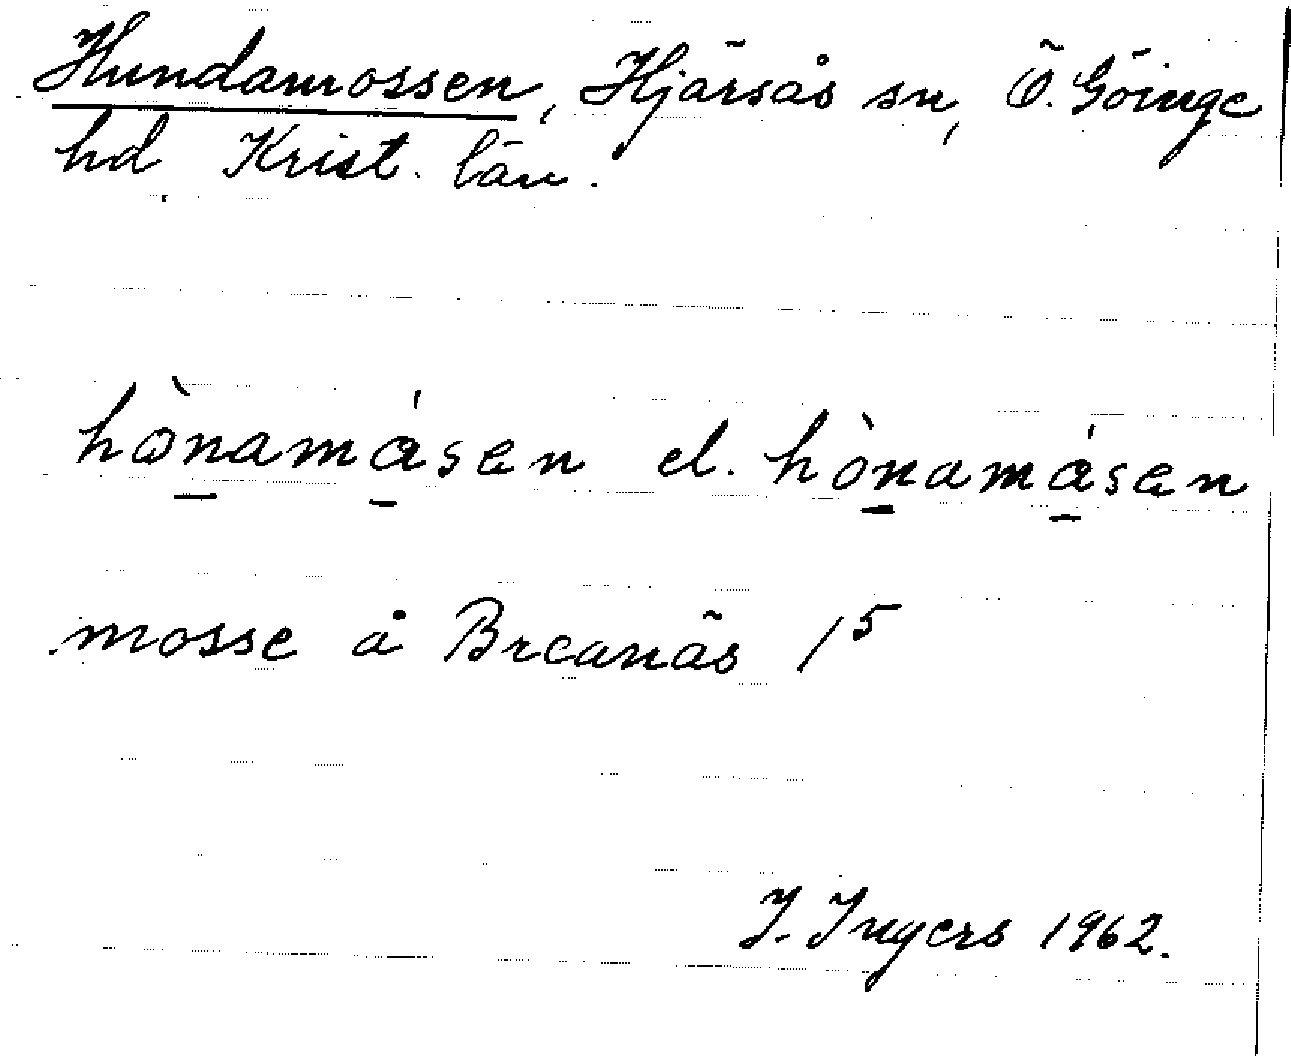 Hundamossen, Hjärsås sn, Ö. Göinge
hd Krist. län.
hònamásen el. hònamásen
mosse å Breanäs 1⁵
I. Ingers 1962.